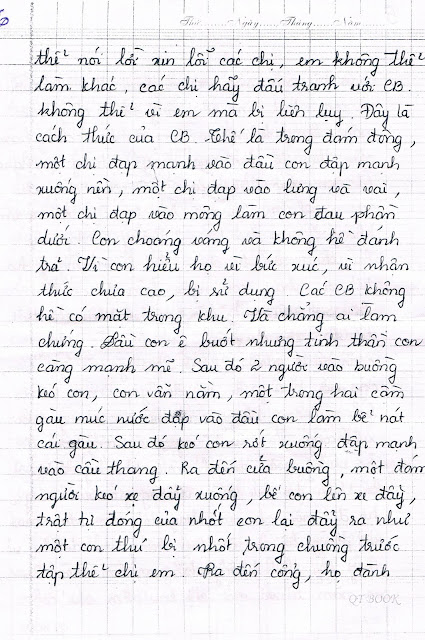 Thứ.......Ngày.......Tháng.......Năm.......
thể nói lời xin lỗi các chị, em không thể
làm khác, các chị hãy đấu tranh với CB.
không thể vì em mà bị liên lụy. Đây là
cách thức của CB. Thế là trong đám đông,
một chị đạp mạnh vào đầu con đập mạnh
xuống nền, một chị đạp vào lưng và vai,
một chị đạp vào mông làm con đau phần
dưới. Con choáng váng và không hề đánh
trả. Vì con hiểu họ vì bức xúc, vì nhận
thức chưa cao, bị sử dụng. Các CB không
hề có mặt trong khu. Và chẳng ai làm
chứng. Đầu con ê buốt nhưng tinh thần con
càng mạnh mẽ. Sau đó 2 người vào buồng
kéo con, con vẫn nằm, một trong hai cầm
gàu múc nước đập vào đầu con làm bể nát
cái gàu. Sau đó kéo con rớt xuống đập mạnh
vào cầu thang. Ra đến cửa buồng, một đám
người kéo xe đẩy xuống, bế con lên xe đẩy,
trật tự đóng cửa nhốt con lại đẩy ra như
một con thú bị nhốt trong chuồng trước
tập thể chị em. Ra đến cổng, họ đành
QT BOOK